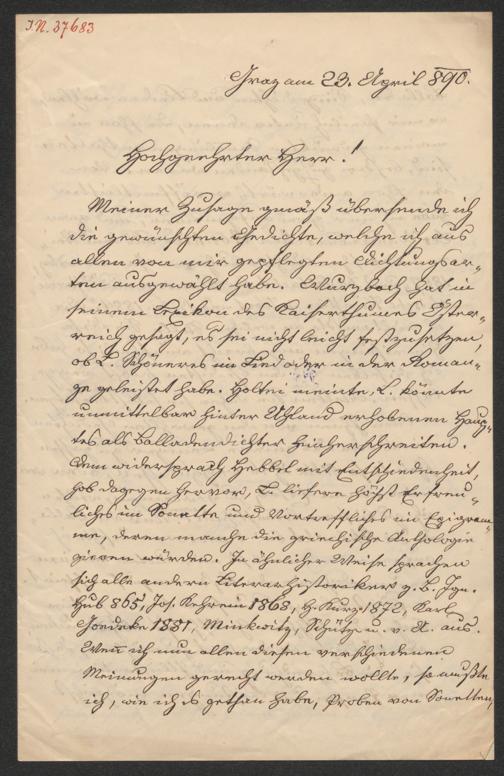 I.N. 37683
Graz am 23. April 890.
Hochgeehrter Herr!
Meiner Zusage gemäß übersende ich
die gewünschten Gedichte, welche ich aus
allen von mir gepflegten Dichtungsar-
ten ausgewählt habe. Wurzbach hat in
seinem Lexikon des Kaiserthumes Oster-
reich gesagt, es sei nicht leicht festzusetzen,
ob L. Schöneres im Lied oder in der Roman-
ze geleistet habe. Holtei meinte, L. könnte
unmittelbar hinter Uhland erhobenen Haup-
tes als Balladendichter einherschreiten.
Dem widersprach Hebbel mit Entschiedenheit,
hob dagegen hervor, L. liefere höchst Erfreu-
liches im Sonette und Vortreffliches im Epigram-
me, deren manche die griechische Anthologie
zieren würden. In ähnlicher Weise sprachen
sich alle andern Literarhistoriker z. B. Ign.
Hub 865, Jos. Kehrein 1868, H. Kurz 1872, Karl
Goedeke 1881, Minkwitz, Schütze u. v. A. aus.
Wenn ich nun allen diesen verschiedenen
Meinungen gerecht werden wollte, so mußte
ich, wie ich es gethan habe, Proben von Sonetten,